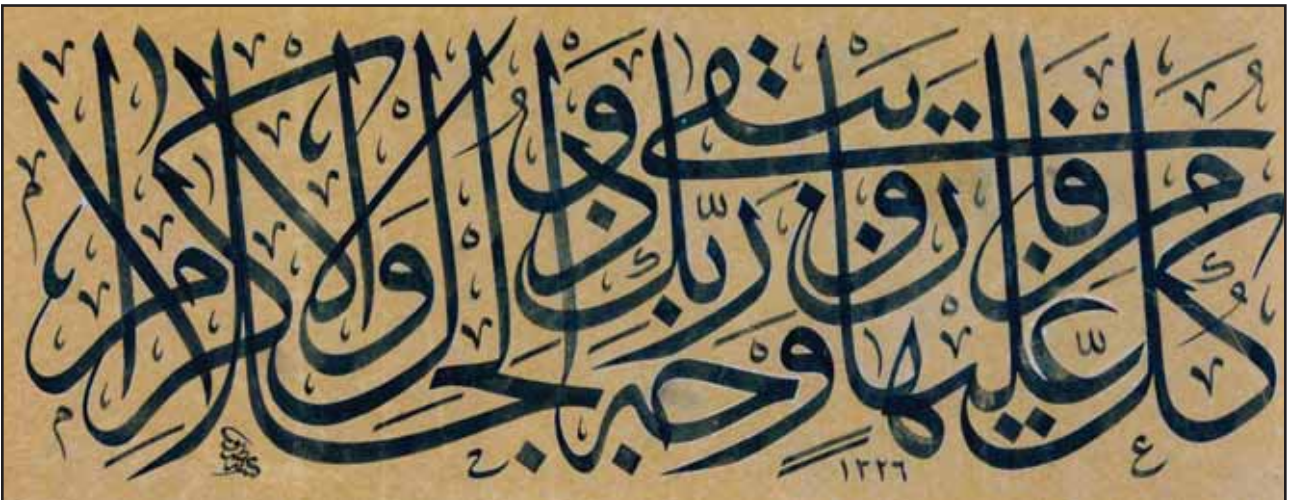 كل من عليها فان ويبقى وجه ربك ذو الجلال والاكرام
١٣٢٦